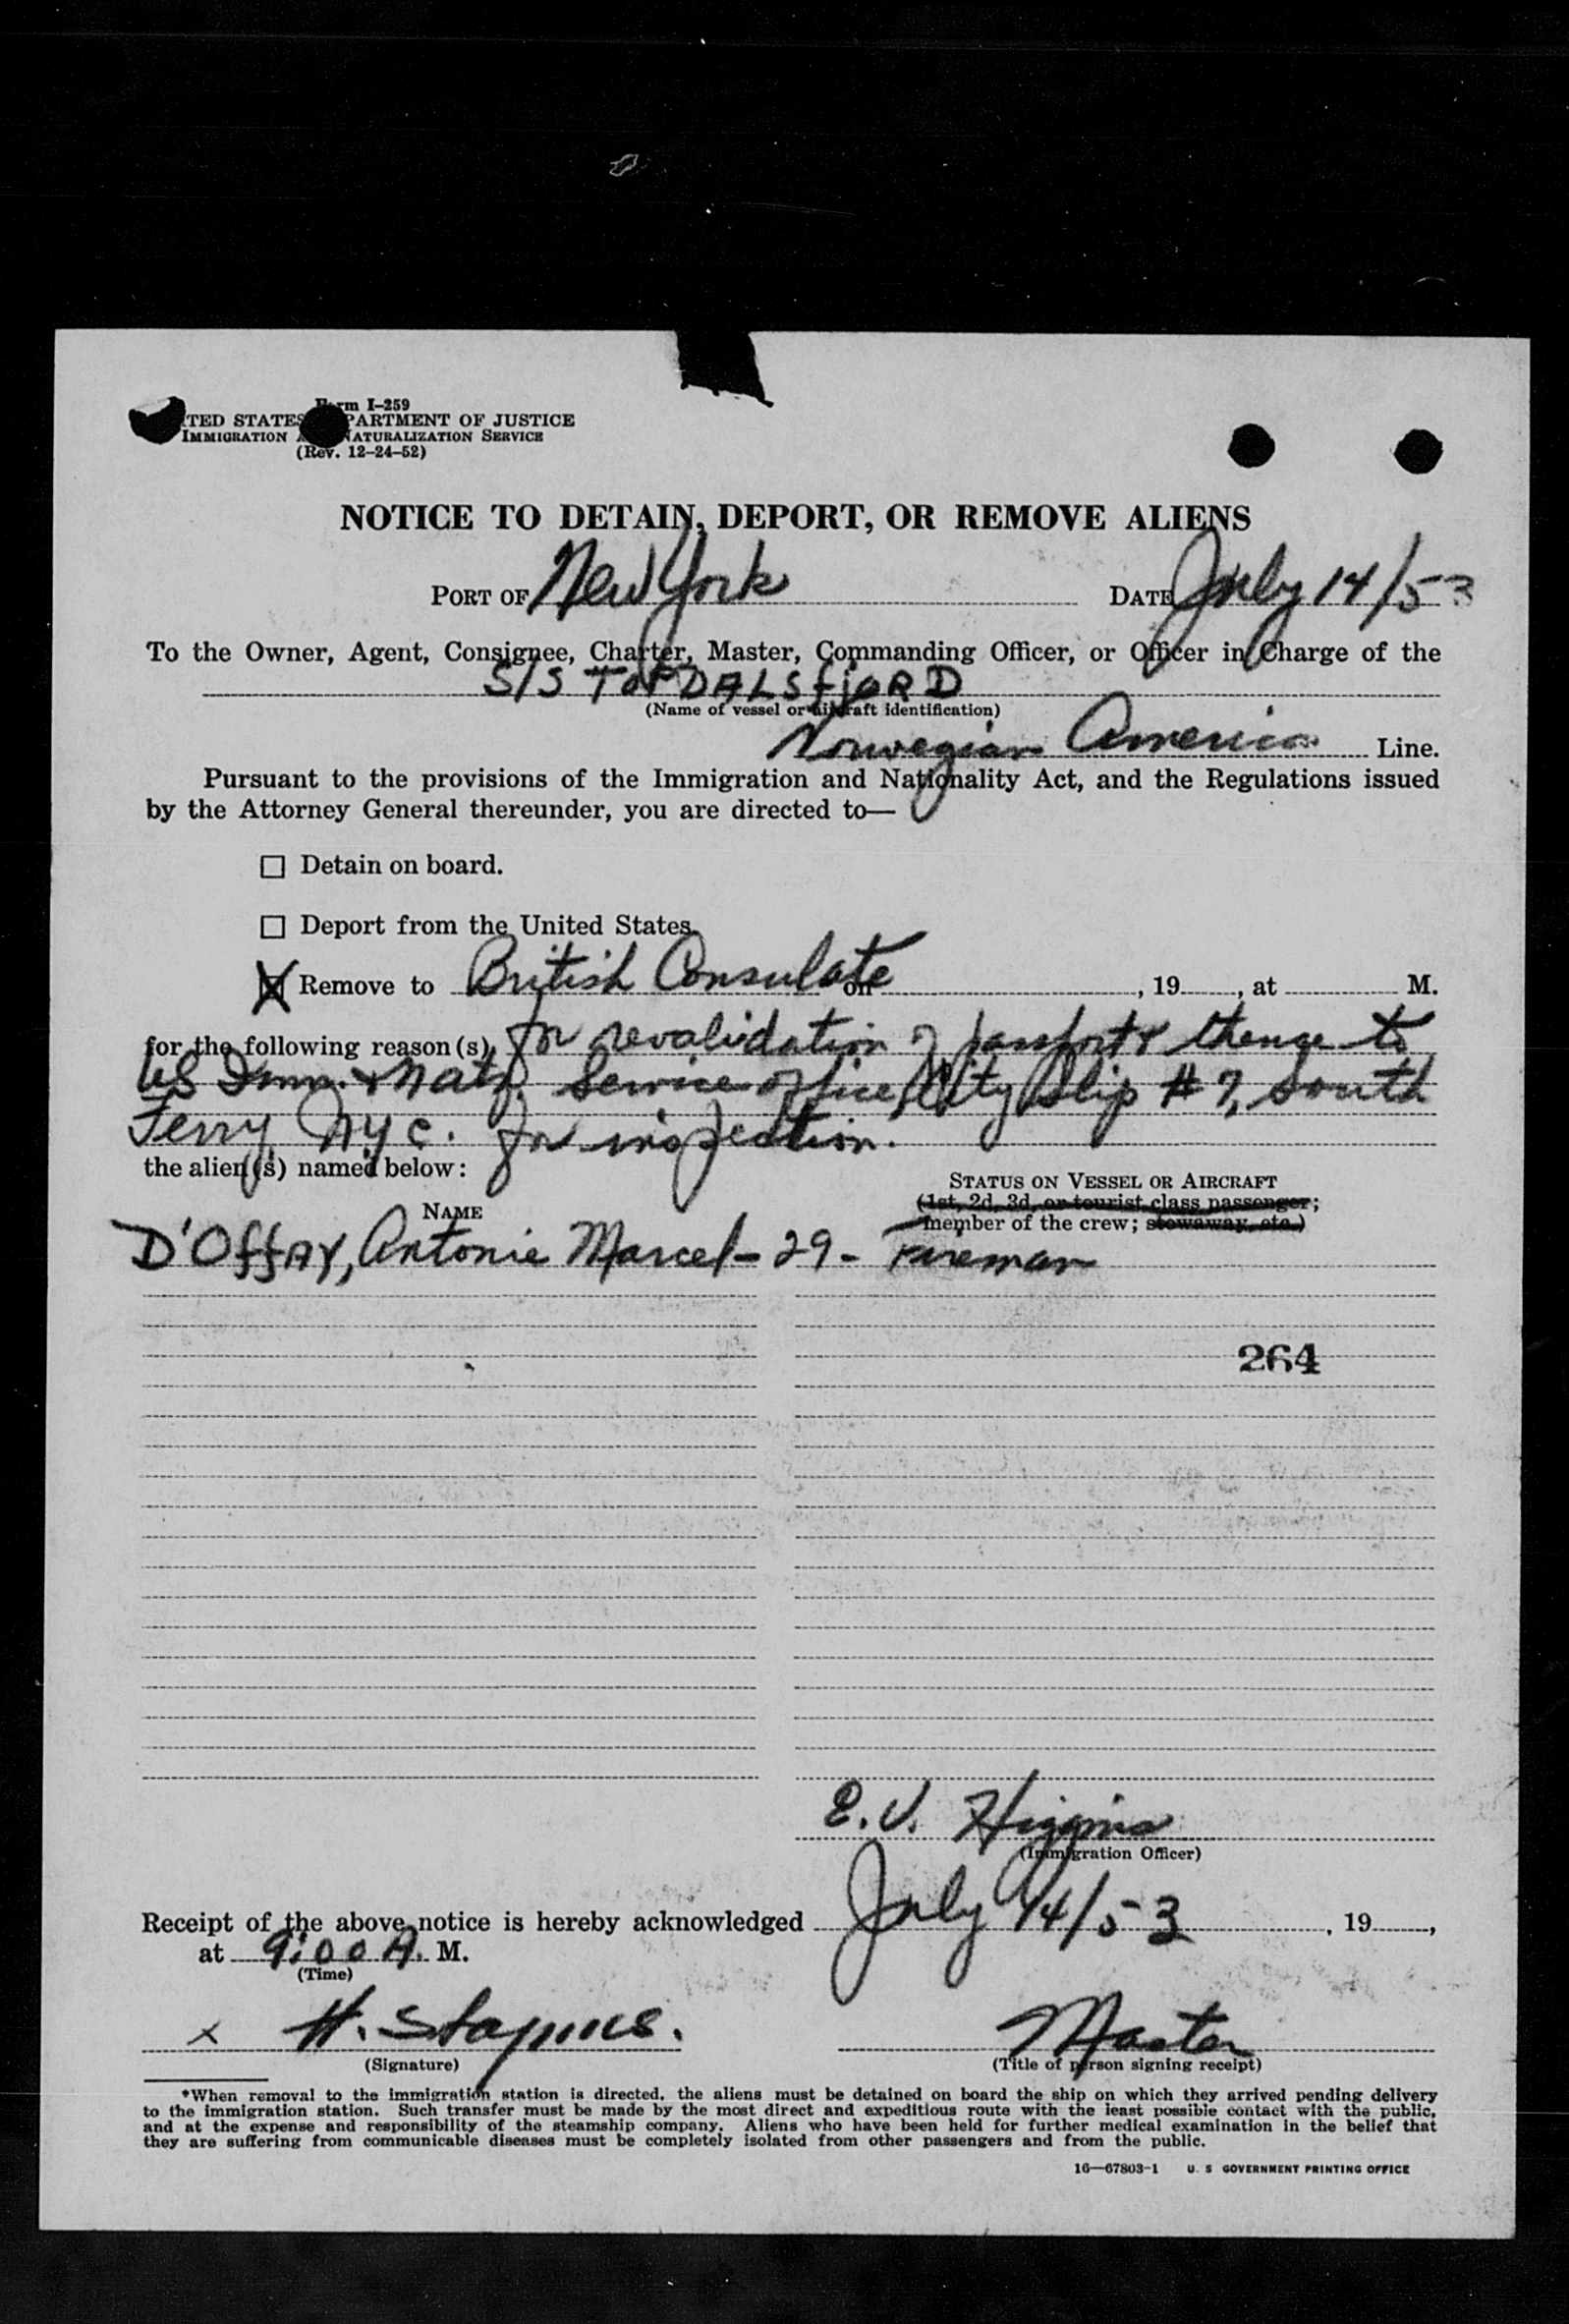 Form I-259
UNITED STATES DEPARTMENT OF JUSTICE
IMMIGRATION AND NATURALIZATION SERVICE
(Rev. 12-24-52)
NOTICE TO DETAIN, DEPORT, OR REMOVE ALIENS
PORT OF New York DATE July 14/53
To the Owner, Agent, Consignee, Charter, Master, Commanding Officer, or Officer in Charge of the
S/S TOPDALSfjORD
(Name of vessel or aircraft identification)
Norwegian America Line.
Pursuant to the provisions of the Immigration and Nationality Act, and the Regulations issued
by the Attorney General thereunder, you are directed to—
☐ Detain on board.
☐ Deport from the United States.
☒ Remove to British Consulate on , 19 , at M.
for the following reason(s) for revalidation of passport & thence to
US Imm. & Natz. Service office, City Slip # 7, South
Ferry NYC. for inspection.
the alien(s) named below:
NAME
STATUS ON VESSEL OR AIRCRAFT
(1st, 2d, 3d, or tourist class passenger;
member of the crew; stowaway, etc.)
D'OffAY, Antonie Marcel - 29 - Fireman
264
E.V. Higgins
(Immigration Officer)
Receipt of the above notice is hereby acknowledged July 14/53 , 19 ,
at 9:00 A. M.
(Time)
x H. Master
(Signature) (Title of person signing receipt)
*When removal to the immigration station is directed, the aliens must be detained on board the ship on which they arrived pending delivery
to the immigration station. Such transfer must be made by the most direct and expeditious route with the least possible contact with the public,
and at the expense and responsibility of the steamship company. Aliens who have been held for further medical examination in the belief that
they are suffering from communicable diseases must be completely isolated from other passengers and from the public.
16—67803-1 U. S GOVERNMENT PRINTING OFFICE